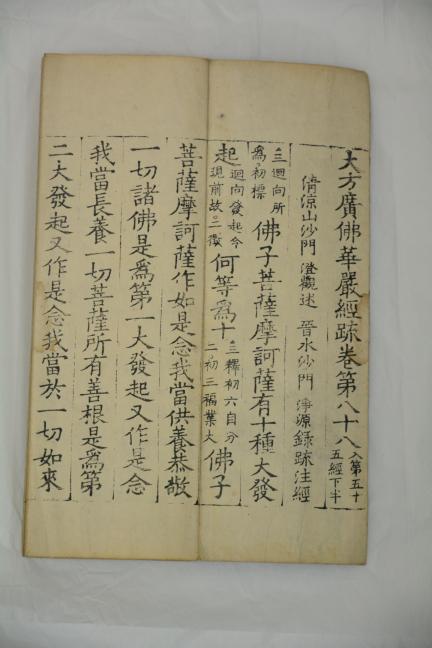 大方廣佛華嚴經䟽卷第八十八入第五十五經下半
清涼山沙門 澄觀述 晉水沙門 淨源錄䟽注經
三迴向所爲初標佛子菩薩摩訶薩有十種大發
起迴向發起令現前故二徵何等爲十三釋初六自分二初三福業大佛子
菩薩摩訶薩作如是念我當供養恭敬
一切諸佛是爲第一大發起又作是念
我當長養一切菩薩所有善根是爲第
二大發起又作是念我當於一切如來